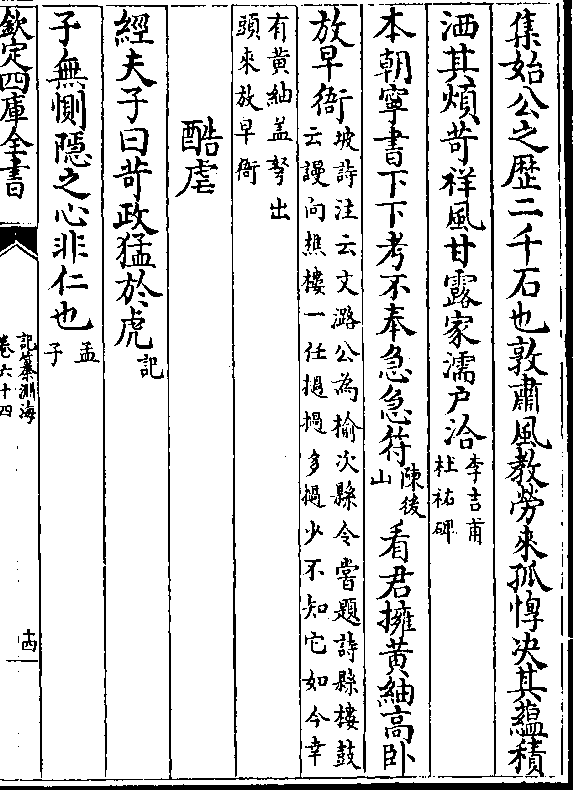 集始公之歴二千石也敦肅風教勞來孤惸决其蘊積
洒其煩苛祥風甘露家濡户洽李吉甫杜祐碑
本朝寧書下下考不奉急急符陳後山看君擁黄紬高卧
放早衙坡詩注云文潞公為榆次縣令嘗題詩縣樓鼓云謾向樵樓一任撾撾多撾少不知它如今幸
有黄紬盖努出頭來放早衙
酷虐
經夫子曰苛政猛於虎記
子無惻隱之心非仁也孟子
欽定四庫全書
記纂淵海
卷六十四
十四